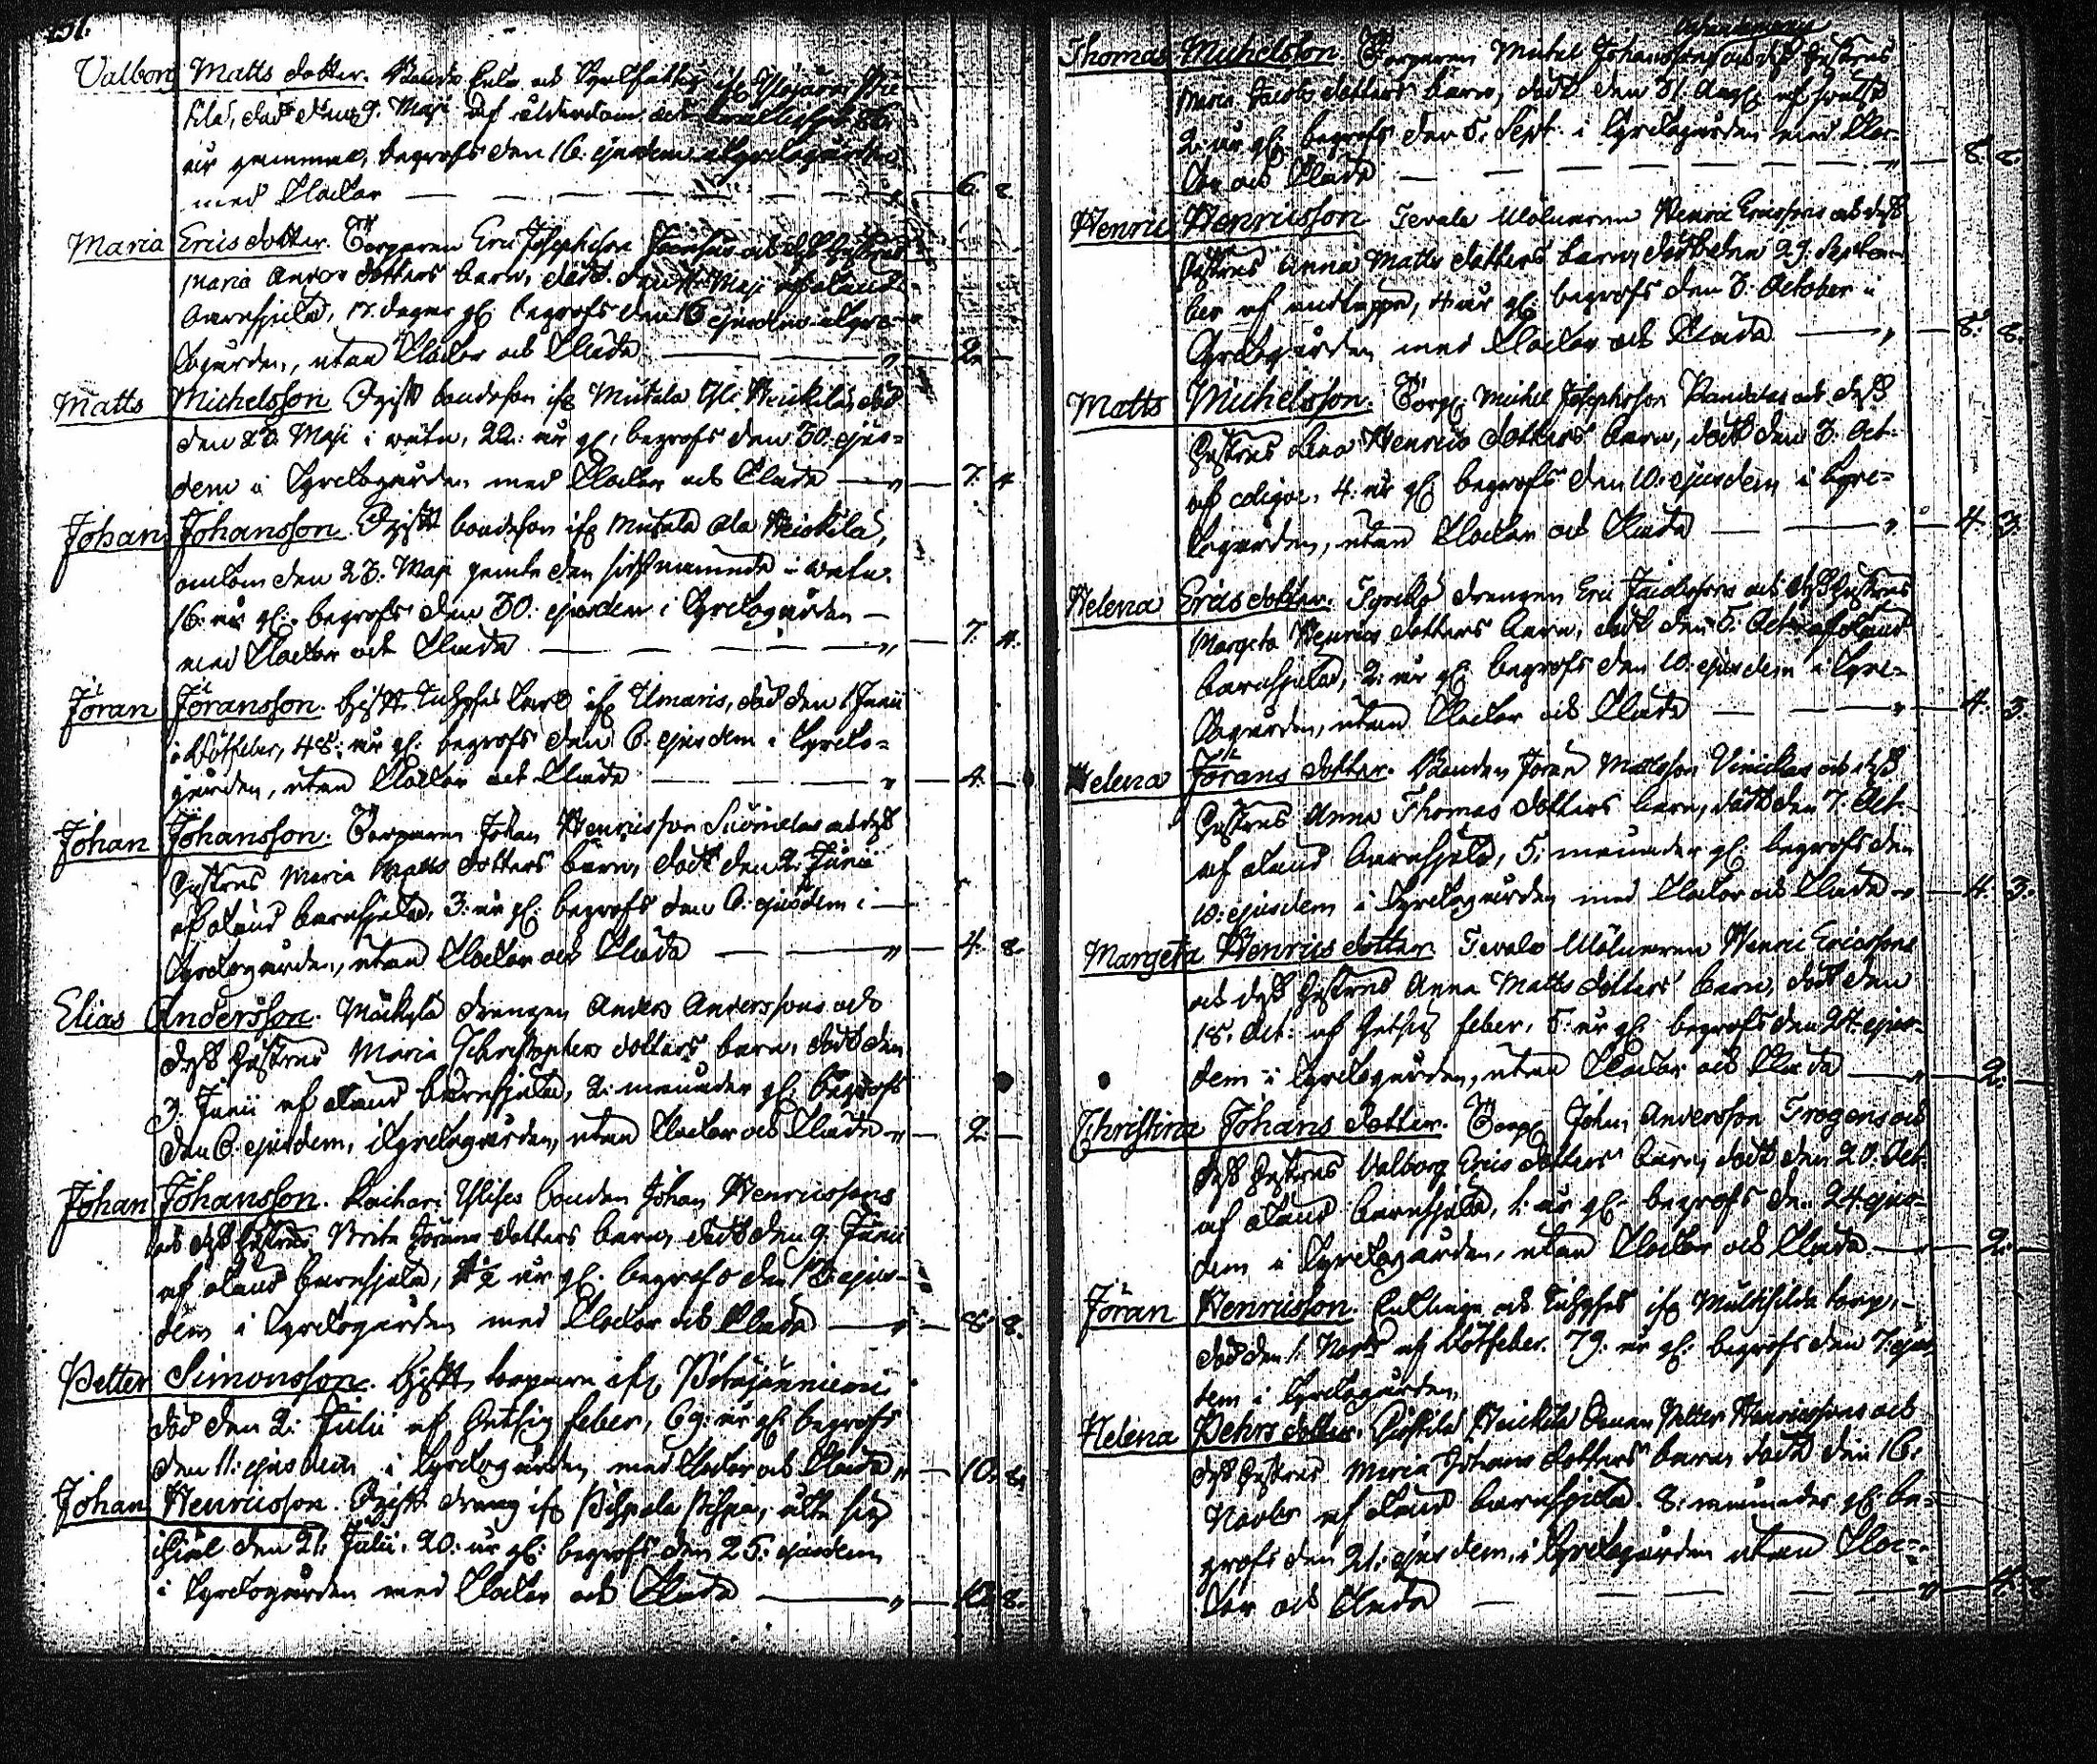 Valborg Matts dotter. Bonde Enka och
död den 9. Maji af ålderdom och
år gammal, begrofs den 16. ejusdem i kyrckogården
med klockor 6. 2
Maria Erics dotter. Torparen Eric Josephsson och dess hustrus
Maria Anders dotters barn, död den Maji af okänd
barnsjuka, 17. dagar gl. begrofs den 16 ejusdem i kyrc-
kogården, utan klockor och kläde 2. —
Matts Michelsson Ogift bondeson ifr. Mutala Yli Heickilä, död
den 23. Maji i watn, 22. år gl. begrofs den 30. ejus-
dem i kyrckogården med klockor och kläde 7. 4
Johan Johansson. Ogift bondeson ifr. Mutala Ala Heickilä,
omkom den 23. Maji jemte den sistnämnde i watn.
16. år gl. begrofs den 30. ejusdem i kyrckogården
med klockor och kläde 7. 4.
Jöran Jöransson. Gift Inhyses karl ifr. Ilmaris, död den 1 Junii
i Rötfeber, 48. år gl. begrofs den 6. ejusdem i kyrcko-
gården, utan klockor och kläde 4. —
Johan Johansson. Torparen Johan Henricsson och dess
hustrus Maria Matts dotters barn, dödt den 2. Junii
af okänd barnsjuka, 3. år gl. begrofs den 6. ejusdem i
kyrckogården, utan klockor och kläde 4. 8.
Elias Andersson. Mäckylä drengen Anders Anderssons och
dess hustrus Maria Christophers dotters barn, dödt den
3. Junii af okänd barnsjuka, 2. månader gl. begrofs
den 6. ejusdem, i kyrckogården, utan klockor och kläde 2. —
Johan Johansson. Kaihari Ylises bonden Johan Henricssons
och dess hustrus Brita Jörans dotters barn, dödt den 9. Junii
af okänd barnsjuka, år gl. begrofs den 13. ejus-
dem i kyrckogården med klockor och kläde 8. 8.
Petter Simonsson. Gift torpare ifr.
död den 2. Julii af hetsig feber, 69. år gl. begrofs
den 11. ejusdem i kyrckogården med klockor och kläde 10. 8.
Johan Henricsson. Ogift dreng ifr. Pihpala
ihjäl den 21. Julii, 20. år gl. begrofs den 25. ejusdem
i kyrckogården med klockor och kläde 8.
Thomas Michelsson. Torparen Michel Johanssons och dess hustrus
Maria Jacobs dotters barn, dödt den 31. Aug. af
2. år gl. begrofs den 5. Sept. i kyrckogården med kloc-
kor och kläde 8. 8.
Henric Henricsson Tevala Mölnaren Henric Ericssons och dess
hustrus Anna Matts dotters barn, dödt den 29. Septem-
ber af andtäppa, 4 år gl. begrofs den 3. October i
kyrckogården med klockor och kläde 8. 8.
Matts Michelsson. Torp. Michel Josephsson och dess
hustrus Lisa Henrics dotters barn, dödt den 3. Oct.
af colique, 4. år gl. begrofs den 10. ejusdem i kyrc-
kogården, utan klockor och kläde 4. 3.
Helena Erics dotter. drengen Eric Jacobssons och dess hustrus
Margeta Henrics dotters barn, dödt den 5. Oct. af okänd
barnsjuka, 2. år gl. begrofs den 10. ejusdem i kyrc-
kogården, utan klockor och kläde 4. 3.
Helena Jörans dotter. Bonden Jöran Mattsson och dess
hustrus Anna Thomas dotters barn, dödt den 7. Oct.
af okänd barnsjuka, 5. månader gl. begrofs den
10. ejusdem i kyrckogården med klockor och kläde 4. 3.
Margeta Henrics dotter. Tevala Mölnaren Henric Ericssons
och dess hustrus Anna Matts dotters barn, dödt den
18. Oct. af hetsig feber, 5. år gl. begrofs den 24. ejus-
dem i kyrckogården, utan klockor och kläde 2. —
Christina Johans dotter. Torp. Johan Andersson Trogens och
dess hustrus Valborg Erics dotters barn, dödt den 20. Oct.
af okänd barnsjuka, 1. år gl. begrofs den 24. ejus-
dem i kyrckogården, utan klockor och kläde 2. —
Jöran Henricsson. Enkling och Inhyses ifr. torp,
död den 1. Novb. af Rötfeber. 79. år gl. begrofs den 7. ejus-
dem i kyrckogården,
Helena Pehrs dotter. Heickilä Petter Henricssons och
dess hustrus Maria Johans dotters barn, dödt den 16.
Novbr af okänd barnsjuka. 8. månader gl. be-
grofs den 21. ejusdem, i kyrckogården utan kloc-
kor och kläde 4. 8